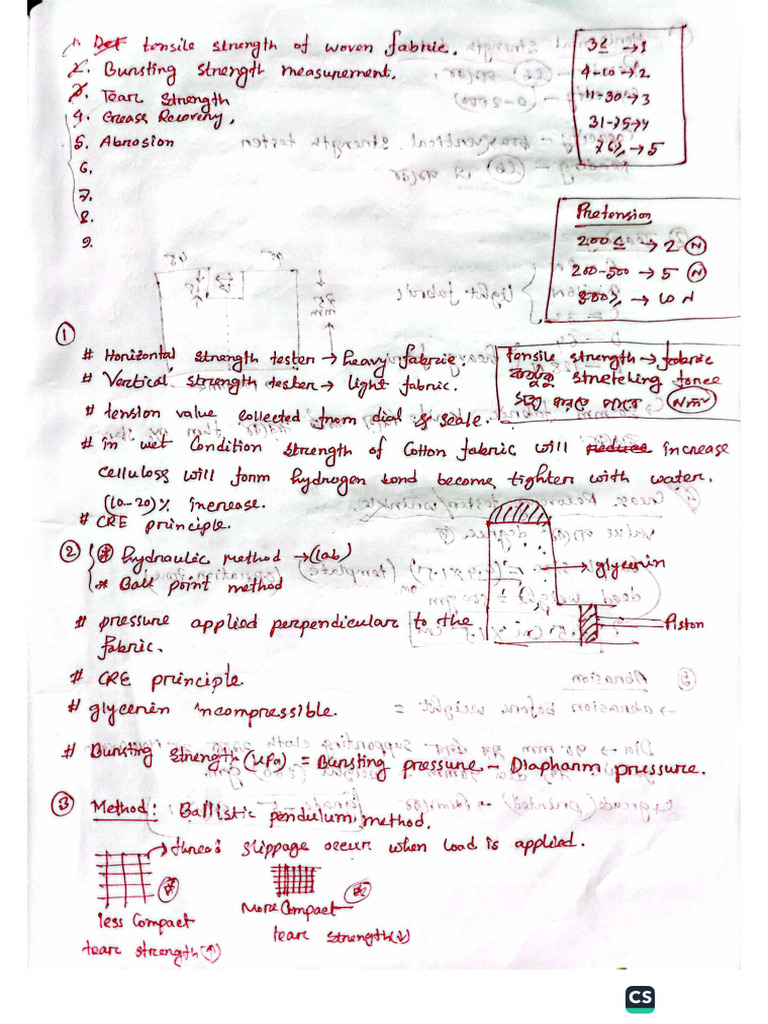 1. Det tensile strength of woven fabric.
2. Bursting strength measurement.
3. Tear strength
4. Crease Recovery,
5. Abrasion
6,
7.
8.
9.
3≤ → 1
4-10 → 2
11-30 → 3
31-75 → 4
76⩾ → 5
Pretension
200≤ → 2 N
200-500 → 5 N
500⩾ → 10 N
①
# Horizontal strength tester → heavy fabric.
# Vertical strength tester → light fabric.
# tension value collected from dial & scale.
Tensile strength → fabric
কতটুকু stretching force
সহ্য করতে পারে
# in wet Condition strength of Cotton fabric will reduce increase
cellulose will form hydrogen bond become tighter with water.
(10-20)% increase.
# CRE principle.
② * hydraulic method → (lab)
* Ball point method
→ glycerin
Piston
# pressure applied perpendicular to the
fabric.
# CRE principle
# glycerin incompressible.
# Bursting strength (kPa) = Bursting pressure - Diapharm pressure.
③ Method: Ballistic pendulum method.
→ thread slippage occur when load is applied.
less Compact
tear strength (↑)
More Compact
tear strength (↓)
CS